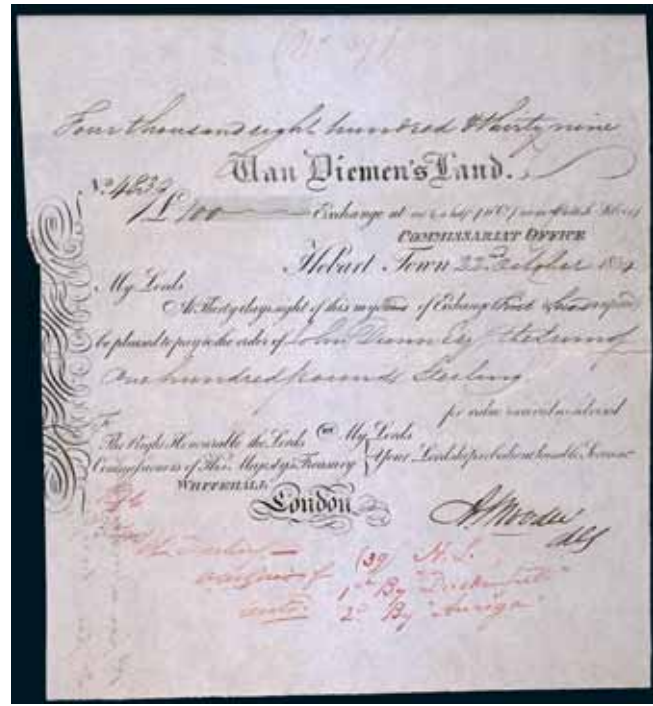 Four thousand eight hundred & thirty nine
Van Diemen's Land.
No. 4839
£100 Exchange at
COMMISSARIAT OFFICE
Hobart Town 22d October 1834
My Lords
At Thirty days sight of this my of Exchange
be pleased to pay to the order of John Dunn Esqr the Sum of
One hundred pounds Sterling
for value received as advised
To
The Right Honourable the Lords My Lords
Commissioners of His Majesty's Treasury Your Lordships obedient humble Servant
WHITEHALL
London
A Moodie
(39) N.S.
1st By
2d By "Auriga"